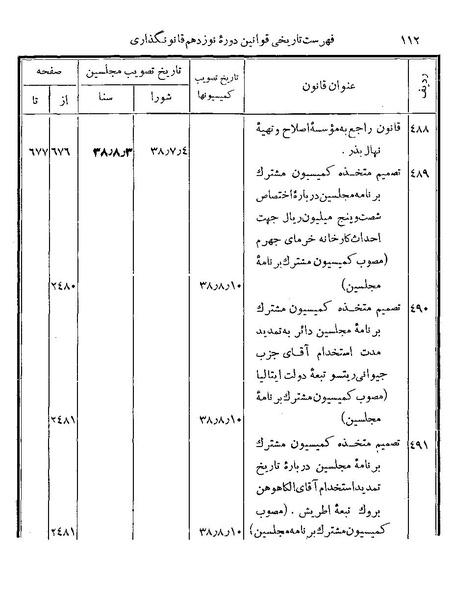 ۱۱۲ فهرست تاریخی قوانین دورهٔ نوزدهم قانونگذاری
ردیف عنوان قانون تاریخ تصویب کمیسیونها تاریخ تصویب مجلسین صفحه
شورا سنا از تا
۴۸۸ قانون راجع به مؤسسهٔ اصلاح و تهیهٔ
نهال بذر . ۳۸٫۷٫۴ ۳۸٫۸٫۳ ۶۷۶ ۶۷۷
۴۸۹ تصمیم متخذه کمیسیون مشترك
برنامه مجلسین دربارهٔ اختصاص
شصت و پنج میلیون ریال جهت
احداث کارخانه خرمای جهرم
(مصوب کمیسیون مشترك برنامهٔ
مجلسین) ۳۸٫۸٫۱۰ ۲٤۸۰
۴۹۰ تصمیم متخذه کمیسیون مشترك
برنامهٔ مجلسین دائر به تمدید
مدت استخدام آقای جزب
جیوانی ریتسو تبعهٔ دولت ایتالیا
(مصوب کمیسیون مشترك برنامهٔ
مجلسین) ۳۸٫۸٫۱۰ ۲٤۸۱
۴۹۱ تصمیم متخذه کمیسیون مشترك
برنامهٔ مجلسین دربارهٔ تاریخ
تمدید استخدام آقای الکاهوهن
بروك تبعهٔ اطریش . (مصوب
کمیسیون مشترك برنامه مجلسین) ۳۸٫۸٫۱۰ ۲٤۸۱